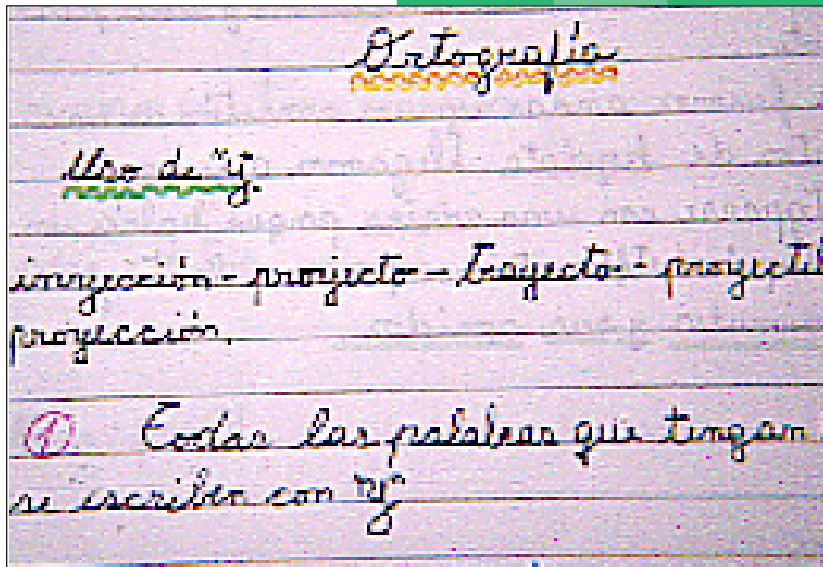 Ortografía
Uso de "y".
inyección - proyecto - trayecto - proyectil
proyección.
① Todas las palabras que tengan
se escriben con "y"